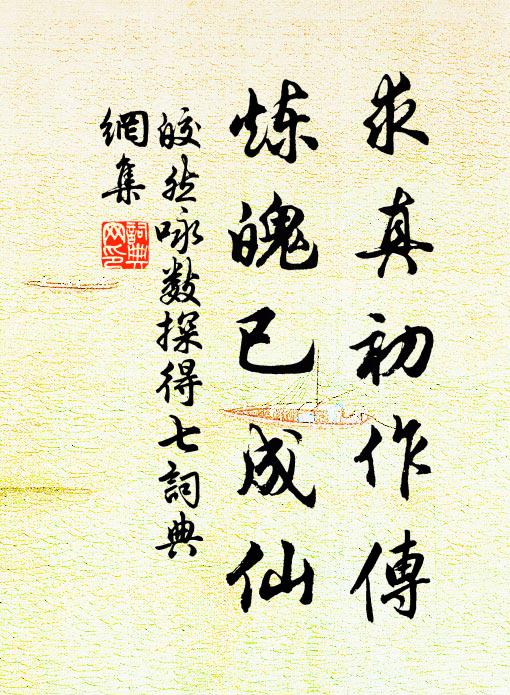 求真初作傳
炼魄已成仙
皎然咏數探得七詞典
網集
詞典
网印